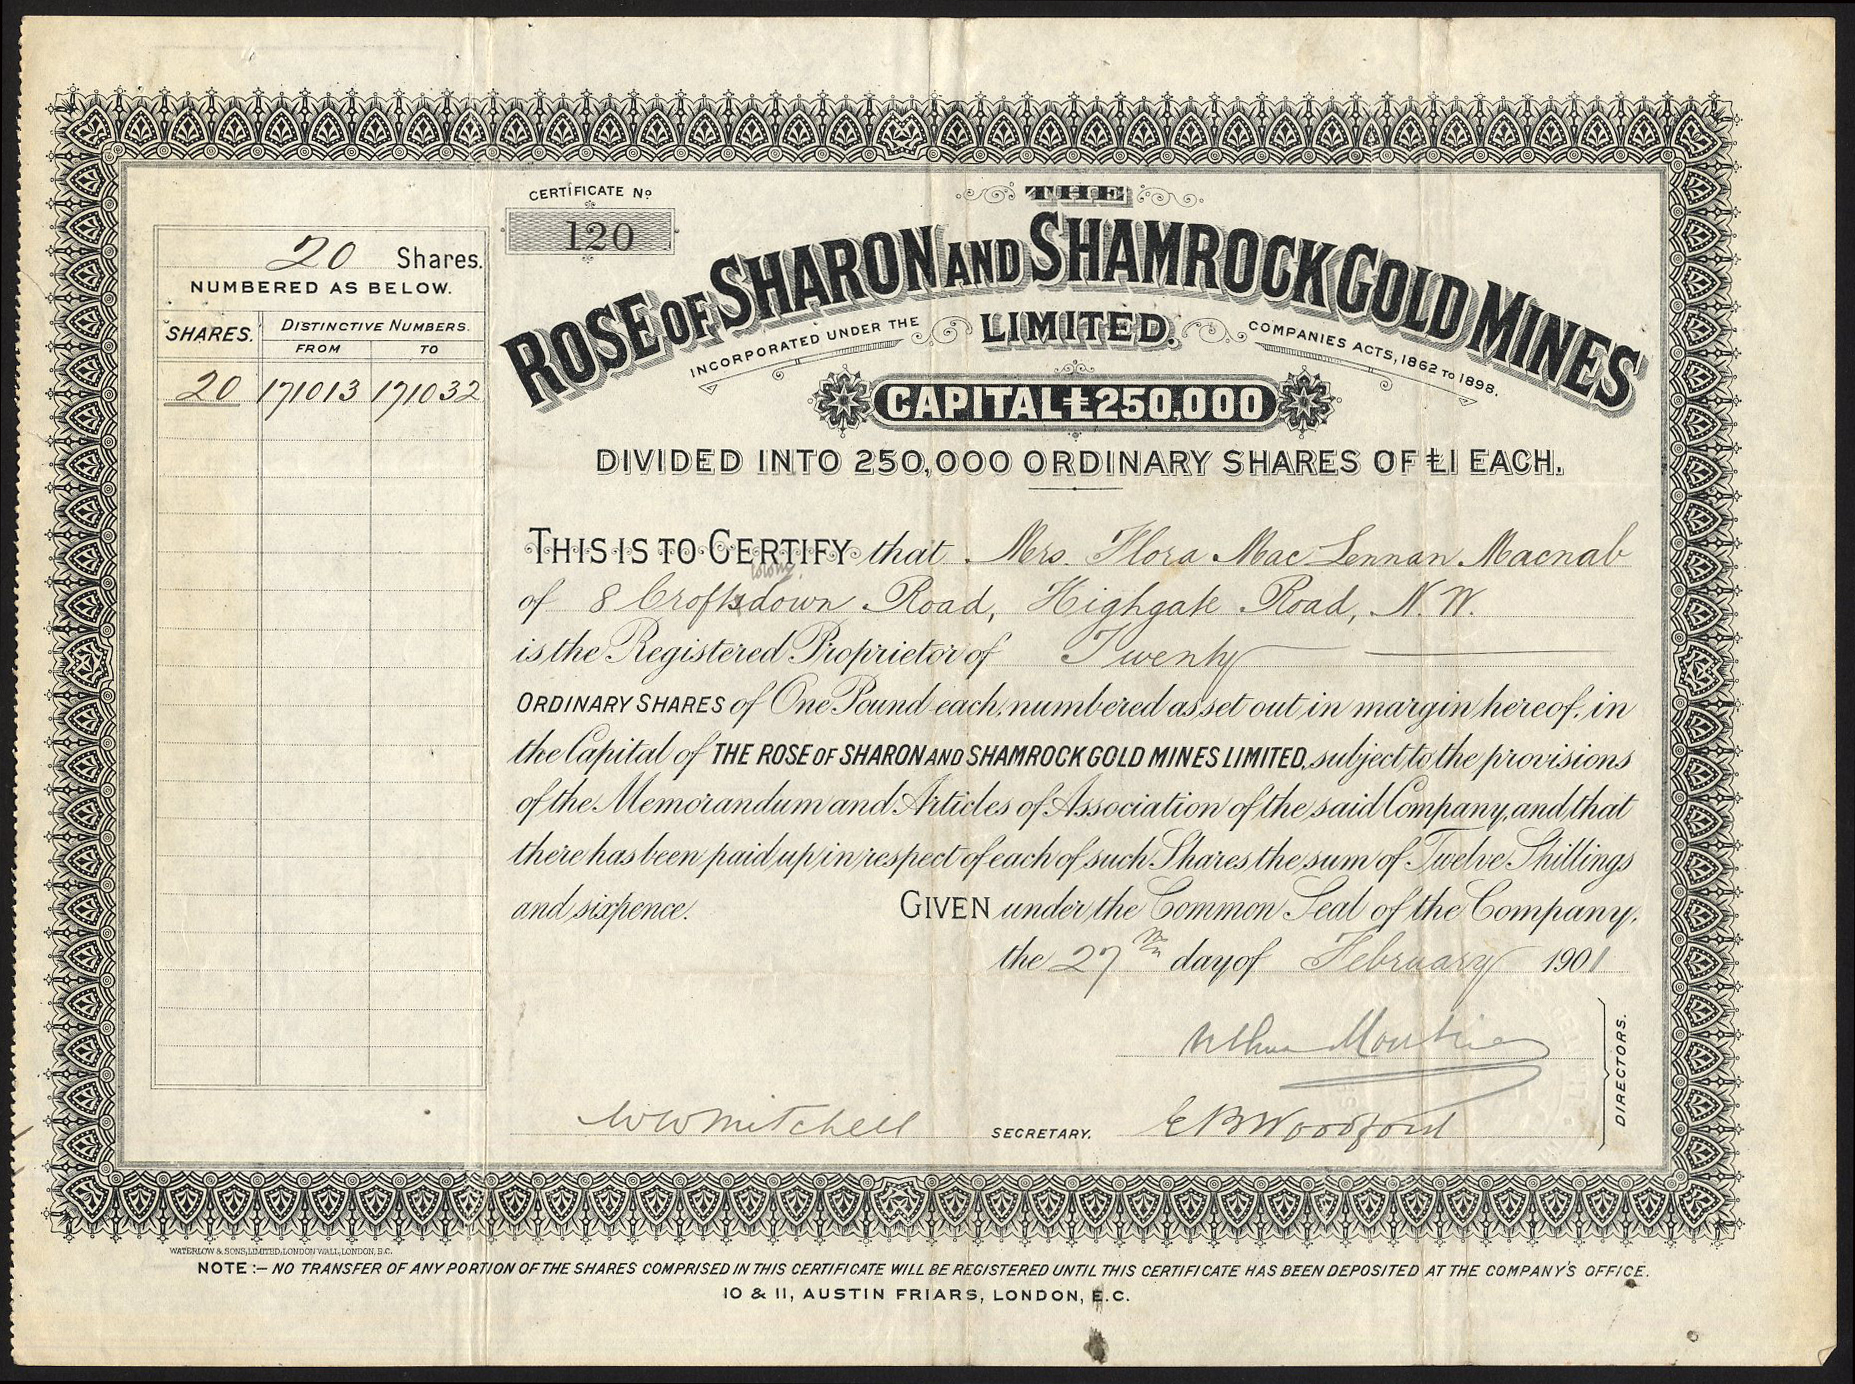 CERTIFICATE No
120
THE
ROSE OF SHARON AND SHAMROCK GOLD MINES
LIMITED.
INCORPORATED UNDER THE COMPANIES ACTS, 1862 TO 1898.
CAPITAL £250,000
DIVIDED INTO 250,000 ORDINARY SHARES OF £1 EACH.
20 Shares.
NUMBERED AS BELOW.
SHARES. DISTINCTIVE NUMBERS.
FROM TO
20 171013 171032
THIS IS TO CERTIFY that Mrs. Flora Mac Lennan Macnab
of 8 Croftsdown Road, Highgate Road, N.W.
is the Registered Proprietor of Twenty
ORDINARY SHARES of One Pound each, numbered as set out in margin hereof, in
the Capital of THE ROSE OF SHARON AND SHAMROCK GOLD MINES LIMITED, subject to the provisions
of the Memorandum and Articles of Association of the said Company, and that
there has been paid up in respect of each of such Shares the sum of Twelve Shillings
and sixpence. GIVEN under the Common Seal of the Company,
the 27th day of February 1901
DIRECTORS.
W W Mitchell SECRETARY. E B Woodford
WATERLOW & SONS, LIMITED, LONDON WALL, LONDON, E.C.
NOTE :- NO TRANSFER OF ANY PORTION OF THE SHARES COMPRISED IN THIS CERTIFICATE WILL BE REGISTERED UNTIL THIS CERTIFICATE HAS BEEN DEPOSITED AT THE COMPANY'S OFFICE.
10 & 11, AUSTIN FRIARS, LONDON, E.C.